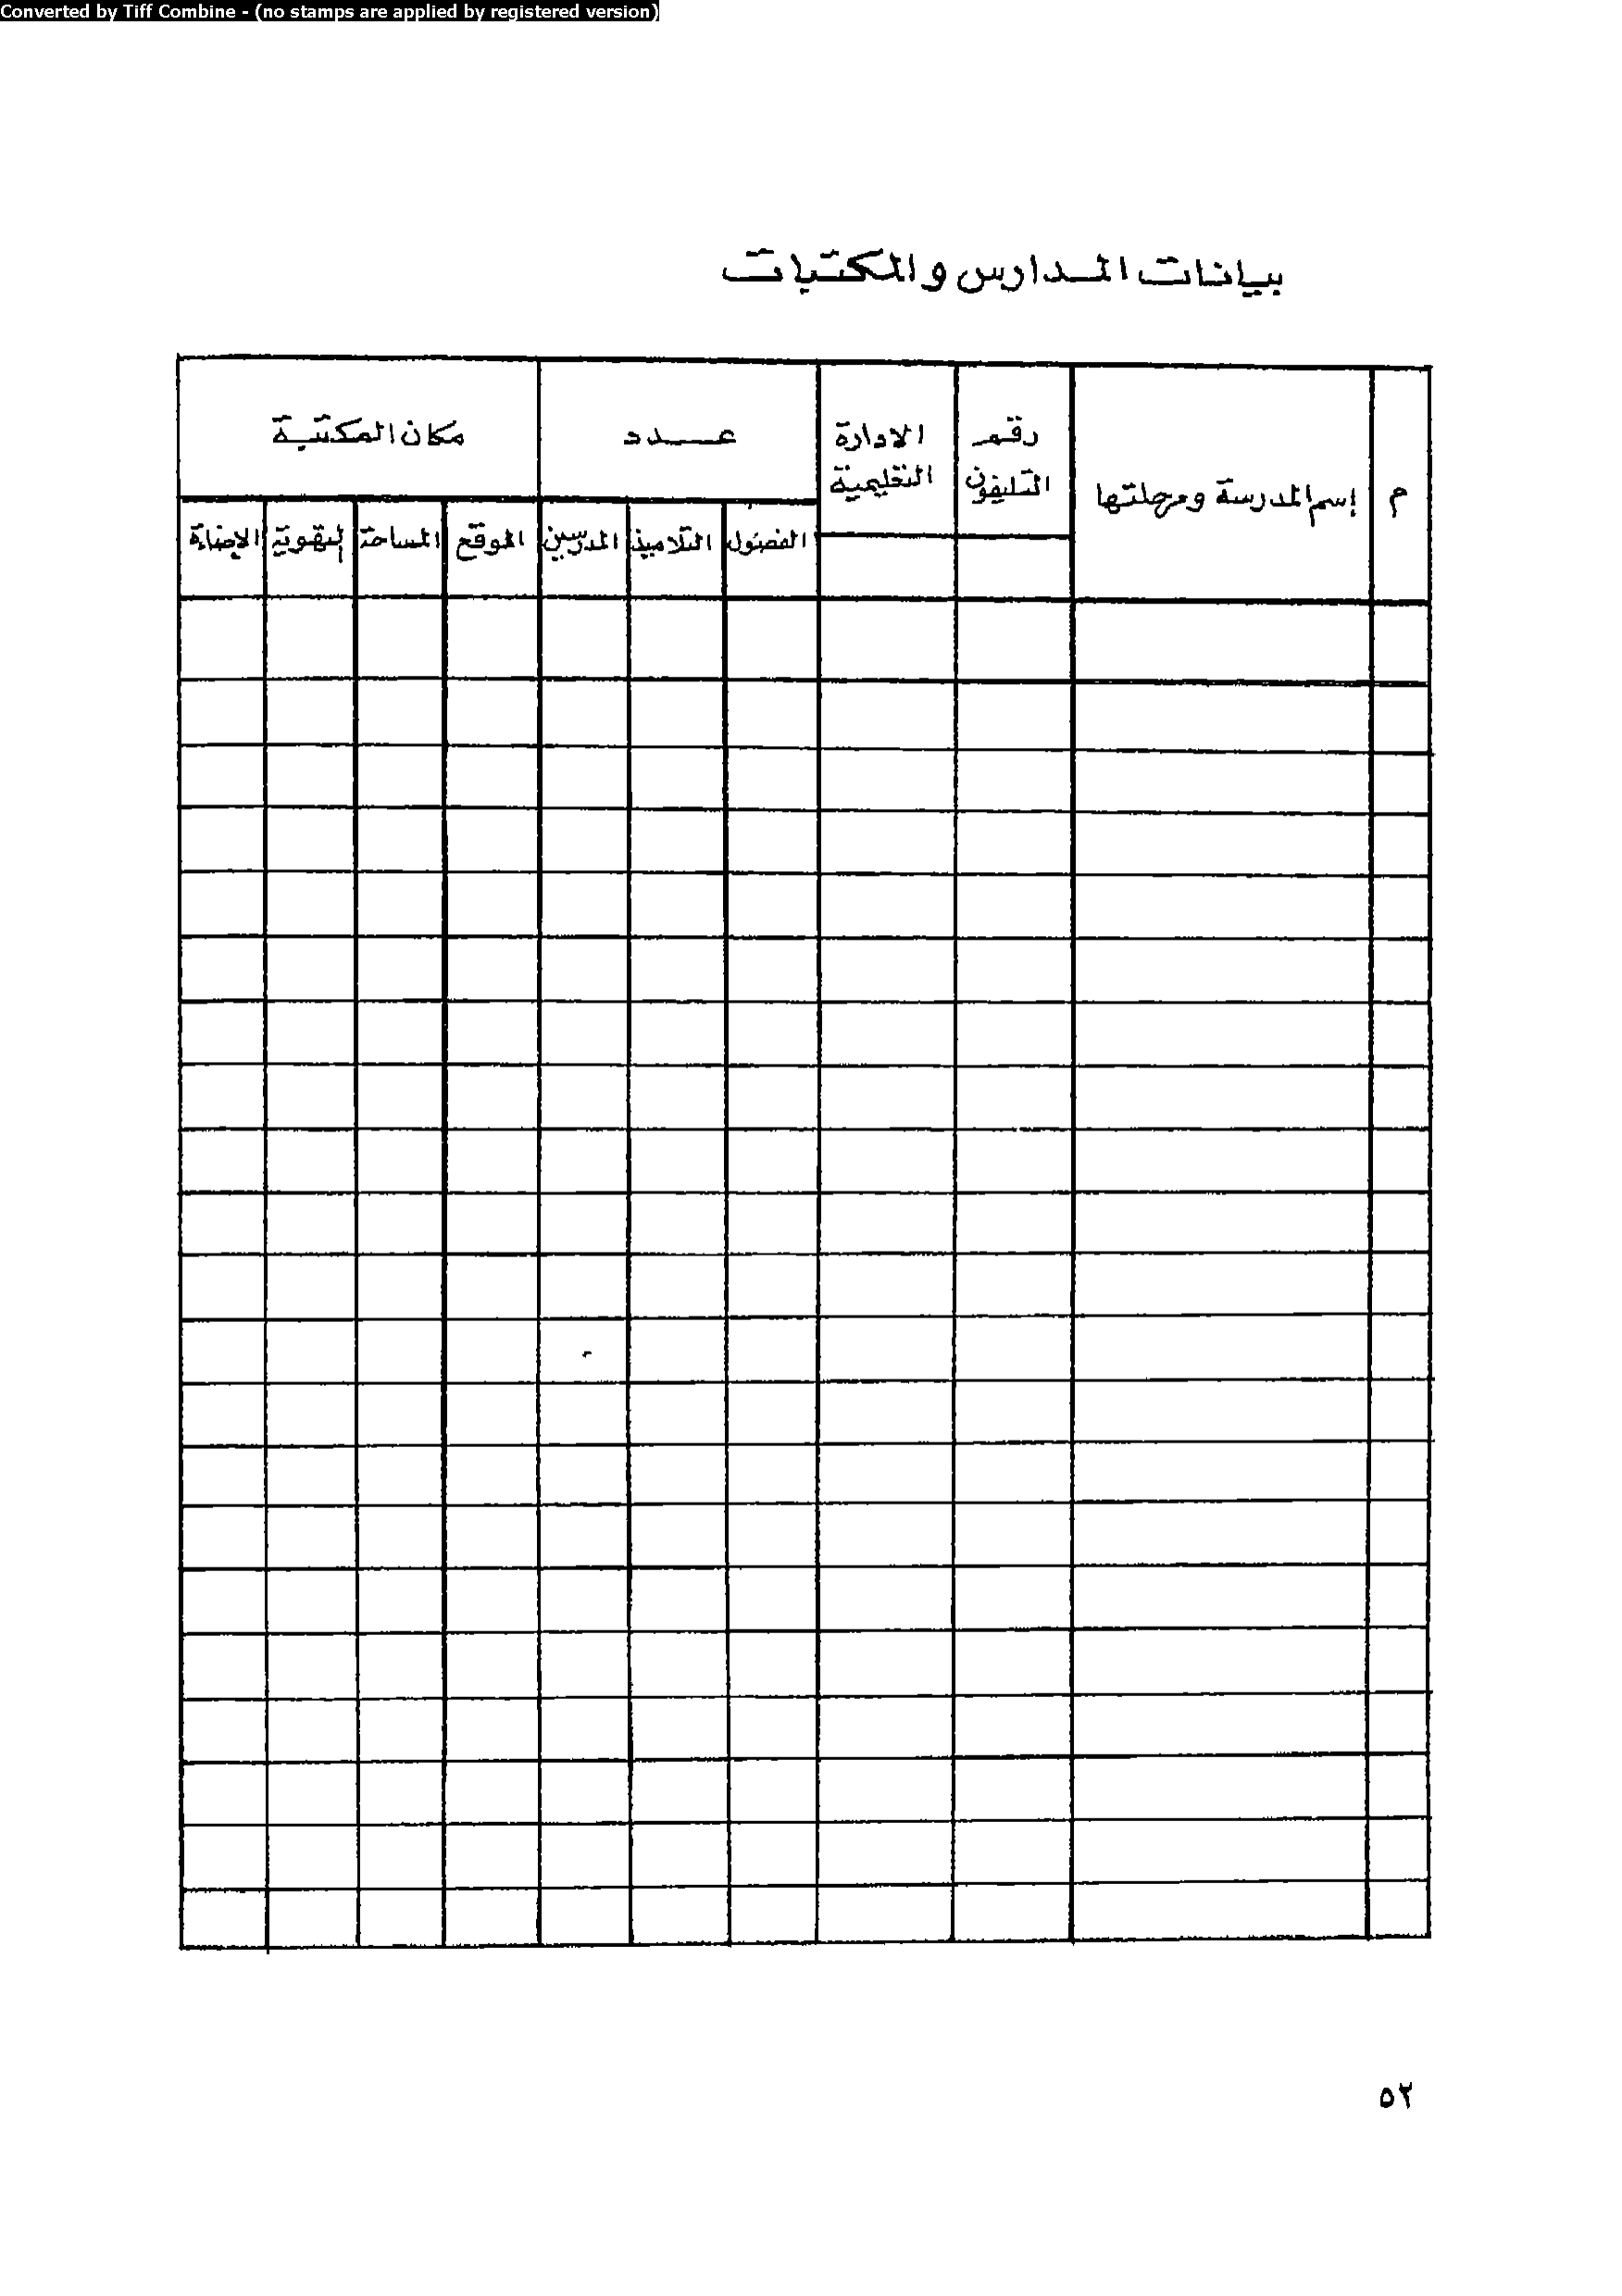 Converted by Tiff Combine - (no stamps are applied by registered version)
بيانات المدارس والمكتبات
م
إسم المدرسة ومرحلتها
رقم
التليفون
الادارة
التعليمية
عدد
مكان المكتبة
الفصول
التلاميذ
المدرسين
الموقع
المساحة
التهوية
الإضاءة
٥٢